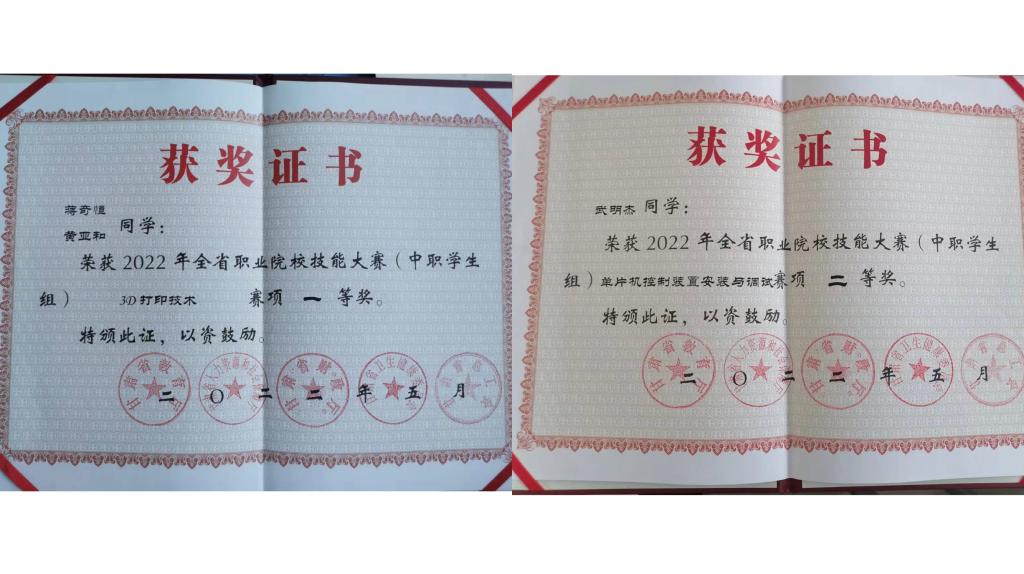 获奖证书
蒋奇恒
黄亚和 同学：
荣获 2022 年全省职业院校技能大赛（中职学生
组） 3D打印技术 赛项 一 等奖。
特颁此证，以资鼓励。
甘肃省教育厅
甘肃省财政厅
二〇二二年五月
获奖证书
武明杰 同学：
荣获 2022 年全省职业院校技能大赛（中职学生
组）单片机控制装置安装与调试赛项 二 等奖。
特颁此证，以资鼓励。
甘肃省教育厅
甘肃省财政厅
二〇二二年五月